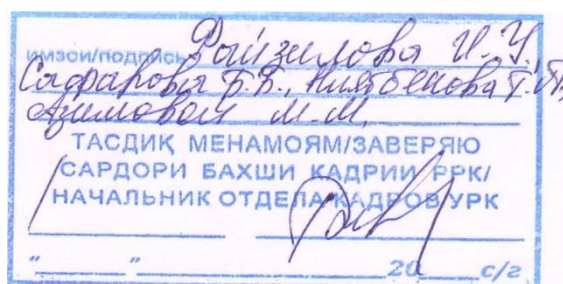 имзои/подпись Файзилова И.У.,
Сафарова Б.Б., Ниятбекова Т.П.,
Азимовой М.М.
ТАСДИҚ МЕНАМОЯМ/ЗАВЕРЯЮ
САРДОРИ БАХШИ КАДРИИ РРК/
НАЧАЛЬНИК ОТДЕЛА КАДРОВ УРК
"____"____________20____с/г